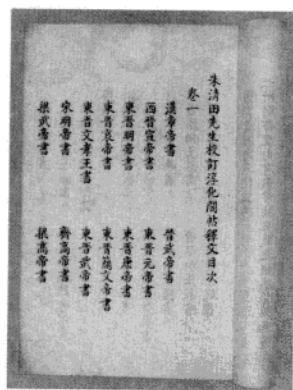 朱清田先生校訂淳化閣帖釋文目次
卷一
漢章帝書
晉武帝書
西晉宣帝書
東晉元帝書
東晉明帝書
東晉康帝書
東晉哀帝書
東晉簡文帝書
東晉文孝王書
東晉武帝書
宋明帝書
齊高帝書
梁武帝書
梁高帝書